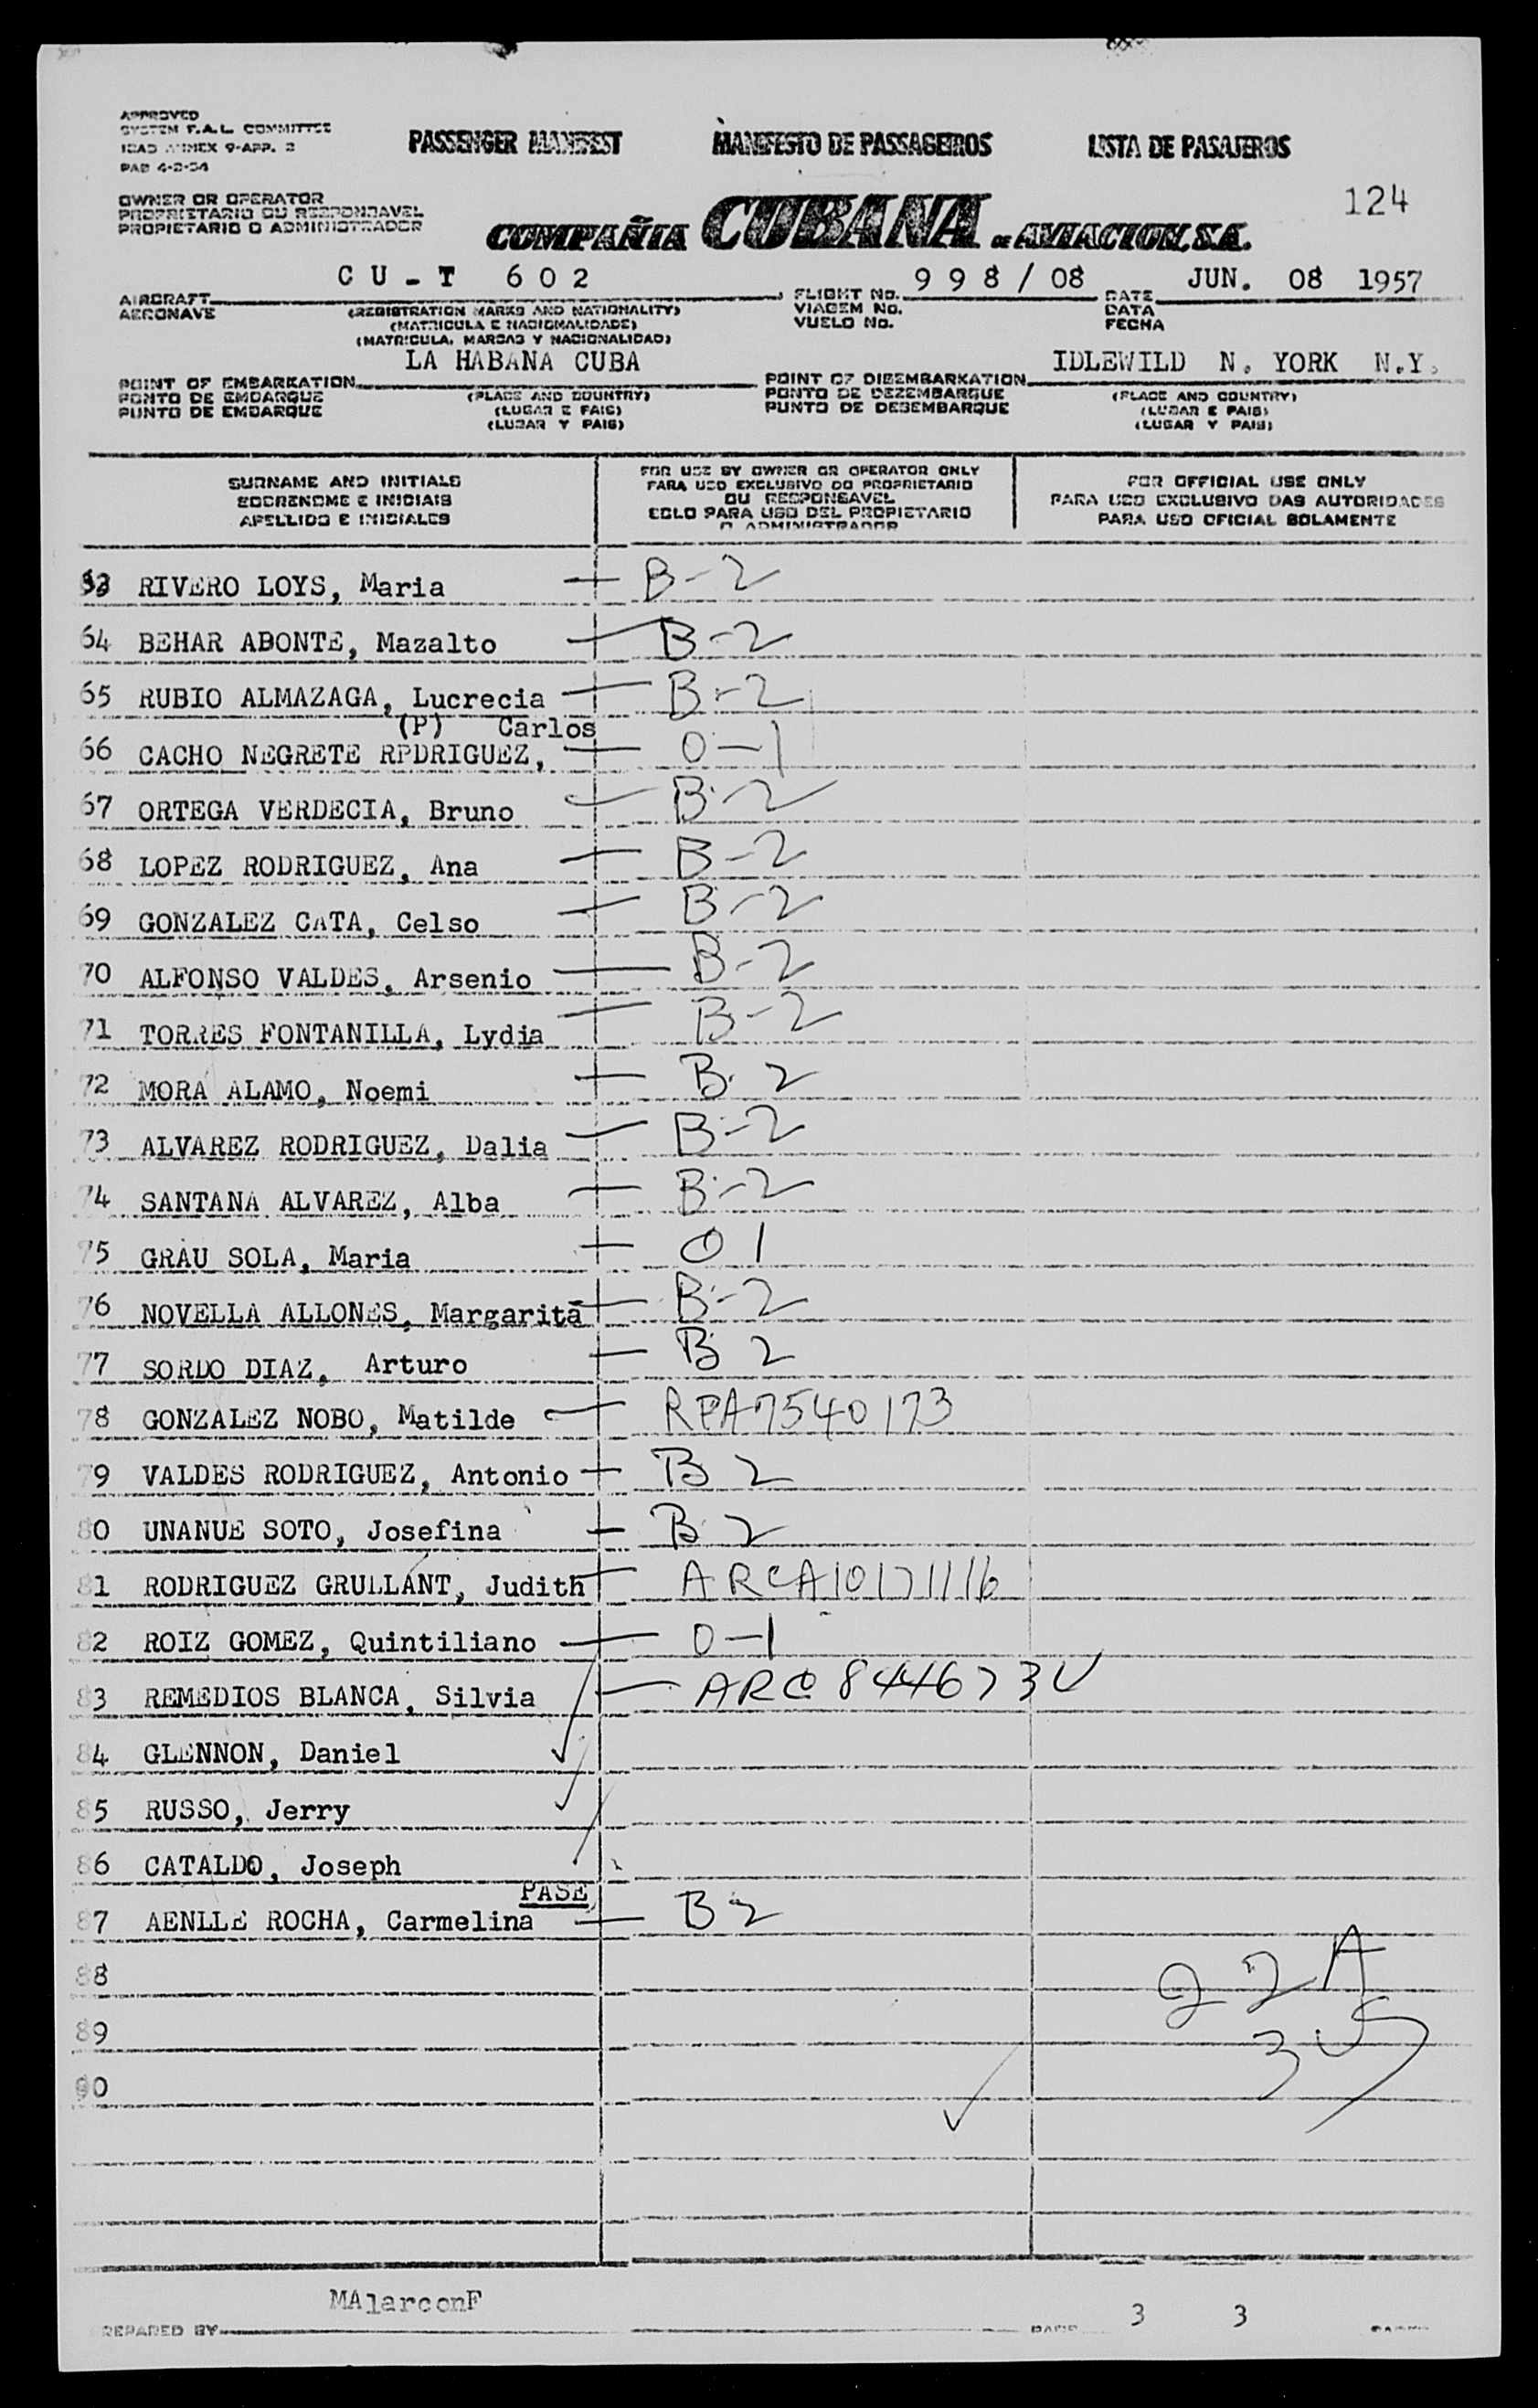 APPROVED
SYSTEM F.A.L. COMMITTEE
ICAO ANNEX 9-APP. 2
PAD 4-2-54
PASSENGER MANIFEST MANIFESTO DE PASSAGEIROS LISTA DE PASAJEROS
124
OWNER OR OPERATOR
PROPRIETARIO OU RESPONSAVEL
PROPIETARIO O ADMINISTRADOR
COMPAÑIA CUBANA DE AVIACION, S.A.
AIRCRAFT CU-T 602 FLIGHT No. 998/08 DATE JUN. 08 1957
AERONAVE (REGISTRATION MARKS AND NATIONALITY) VIAGEM No. DATA
(MATRICULA E NACIONALIDADE) VUELO No. FECHA
(MATRICULA, MARCAS Y NACIONALIDAD)
POINT OF EMBARKATION LA HABANA CUBA POINT OF DISEMBARKATION IDLEWILD N. YORK N.Y.
PONTO DE EMBARQUE (PLACE AND COUNTRY) PONTO DE DEZEMBARGUE (PLACE AND COUNTRY)
PUNTO DE EMBARQUE (LUGAR E PAIS) PUNTO DE DESEMBARQUE (LUGAR E PAIS)
(LUGAR Y PAIS) (LUGAR Y PAIS)
SURNAME AND INITIALS
SOBRENOME E INICIAIS
APELLIDO E INICIALES
FOR USE BY OWNER OR OPERATOR ONLY
PARA USO EXCLUSIVO DO PROPRIETARIO
OU RESPONSAVEL
SOLO PARA USO DEL PROPIETARIO
O ADMINISTRADOR
FOR OFFICIAL USE ONLY
PARA USO EXCLUSIVO DAS AUTORIDADES
PARA USO OFICIAL SOLAMENTE
63 RIVERO LOYS, Maria B-2
64 BEHAR ABONTE, Mazalto B-2
65 RUBIO ALMAZAGA, Lucrecia B-2
(P) Carlos
66 CACHO NEGRETE RPDRIGUEZ, 0-1
67 ORTEGA VERDECIA, Bruno B-2
68 LOPEZ RODRIGUEZ, Ana B-2
69 GONZALEZ CATA, Celso B-2
70 ALFONSO VALDES, Arsenio B-2
71 TORRES FONTANILLA, Lydia B-2
72 MORA ALAMO, Noemi B-2
73 ALVAREZ RODRIGUEZ, Dalia B-2
74 SANTANA ALVAREZ, Alba B-2
75 GRAU SOLA, Maria 0 1
76 NOVELLA ALLONES, Margarita B-2
77 SORDO DIAZ, Arturo B 2
78 GONZALEZ NOBO, Matilde RPA7540173
79 VALDES RODRIGUEZ, Antonio B 2
80 UNANUE SOTO, Josefina B 2
81 RODRIGUEZ GRULLANT, Judith ARCA10171116
82 ROIZ GOMEZ, Quintiliano 0-1
83 REMEDIOS BLANCA, Silvia
84 GLENNON, Daniel
85 RUSSO, Jerry
86 CATALDO, Joseph
PASE
87 AENLLE ROCHA, Carmelina B 2
88
89
90
22 A
3 US
MAlarconF
PREPARED BY PAGE 3 3